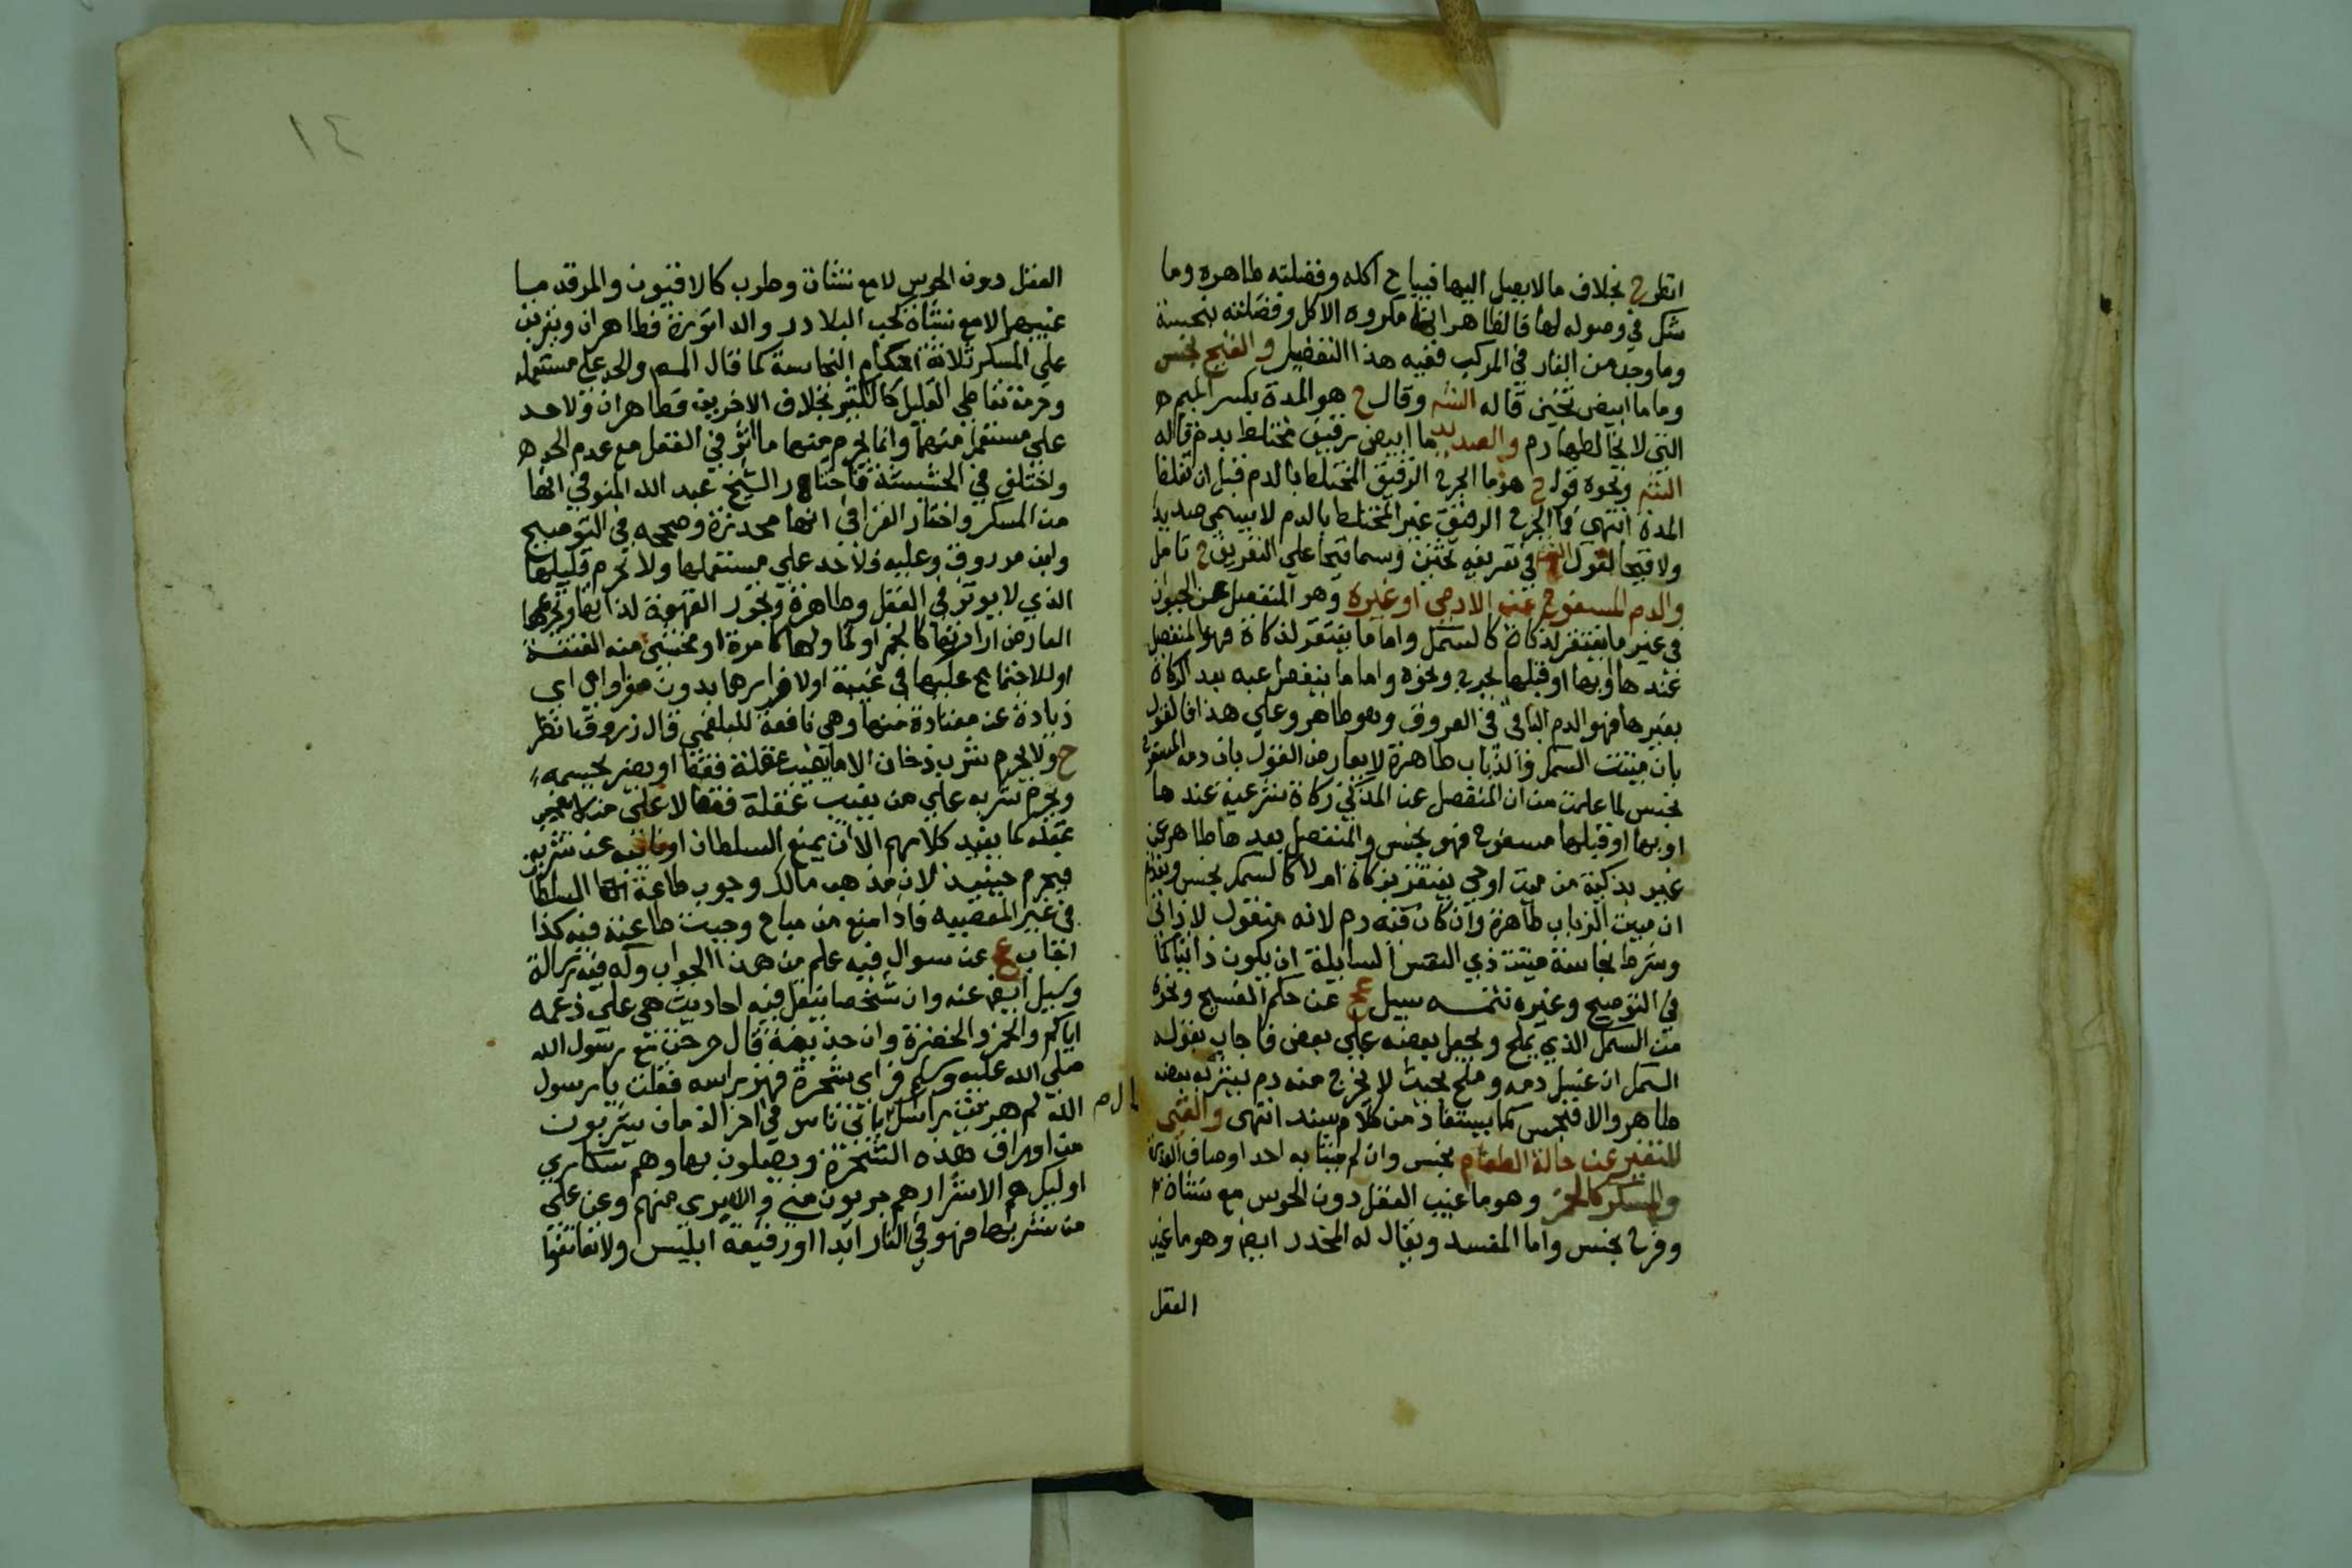 انظر ح بخلاف ما لا يصل اليها فيباح اكله وفضلته طاهره وما
شك في وصوله لها فالظاهر انه مكروه الاكل وفضلته نجسة
وما وجد من الفار في المركب ففيه هذا التفصيل والقيح نجس
وماما ابيض تخين قاله التت وقال ح هو المدة بكسر الميم
التي لا يخالطها دم والصديد ما ابيض رقيق مختلط بدم قاله
التت ونحوه قول ح هو ما الجرح الرقيق المختلط بالدم قبل ان تغلظ
المدة انتهى فما الجرح الرقيق غير المختلط بالدم لا يسمى صديدا
ولا قيحا لقول في تعريفه تخين وسما قيحا على التعريف ح تامل
والدم المسفوح عنه الادمي او غيره وهو المنفصل عن الحيوان
في غير ما يفتقر لذكاة كالسمك واما ما يفتقر لذكاة فهو المنفصل
عندها او بها او قبلها بجرح ونحوه واما ما ينفصل عنه بعد الذكاة
بغيرها فهو الدم الباقي في العروق وهو طاهر وعلى هذا فالقول
بان ميتت السمك والذباب طاهرة لا يعارض القول بان دمه المسفوح
نجس لما علمت من ان المنفصل عن المذكي ذكاة شرعية عندها
او بها او قبلها مسفوح فهو نجس والمنفصل بعدها طاهر عن
غير تذكية من ميت او حي يفتقر بزكاة ام لا كالسمك نجس وتقدم
ان ميت الذباب طاهرة وان كان فيه دم لانه منقول لا ذاتي
وشرط نجاسة ميتت ذي النفس السايلة ان يكون ذاتيا كما
في التوضيح وغيره تتمه سيل عج عن حكم الفسيخ ونحوه
من السمك الذي يملح ويجعل بعضه على بعض فاجاب بقوله
السمك ان غسل دمه وملح بحيث لا يخرج منه دم يشربه بعضه
طاهر والا فنجس كما يستفاد من كلام سند انتهى والقيي
المتغير عن حالة الطعام نجس وان لم يشابه احد اوصاف العذرة
والمسكر كالخمر وهو ما غيب العقل دون الحوس مع نشاة
وفرح نجس واما المفسد ويقال له المخدر ايض وهو ما غيب
العقل
١٤
العقل دون الحوس لا مع نشاة وطرب كالافيون والمرقد ما
غيبهما لا مع نشاة كحب البلادر والداتورة فطاهران ويترتب
على المسكر ثلاثة احكام النجاسة كما قال المص والحد على مستعمله
وحرمة تعاطي القليل كالكثير بخلاف الاخرين فطاهران ولا حد
على مستعمل منهما وانما يحرم منهما ما اثر في العقل مع عدم الحد
واختلف في الحشيشة فاختار الشيخ عبد الله المنوفي انها
من المسكر واختار القرافي انها مخدرة وصححه في التوضيح
وابن مرزوق وعليه فلا حد على مستعملها ولا يحرم قليلها
الذي لا يوثر في العقل وطاهرة وتجوز القهوة لذاتها وتحريمها
العارض ارادتها كالخمر او تناولها كامرة او مخشي منه الفتنة
او للاجتماع عليها في غيبة او لاضرارها بدون مزاولة اي
زيادة عن معتادة منها وهي نافعة للبلغمي قال زروق انظر
ح ولا يحرم شرب دخان الا ما يغيب عقله فقط او يضر بجسمه
ويحرم شربه على من يغيب عقله فقط لا على من لا يغيب
عقله كما يفيد كلامهم الا ان يمنع السلطان او نايبه عن شربه
فيحرم حينيذ لان مذهب مالك وجوب طاعة السلطان
في غير المعصيه فاذا منع من مباح وجبت طاعته فيه كذا
اجاب عج عن سوال فيه علم من هذا الجواب وله فيه رسالة
وسيل ايضا عنه وان شخصا ينقل فيه احاديث هي على زعمه
اياكم والخمر والخضرة وان حذيفة قال خرجت مع رسول الله
صلى الله عليه وسلم فراى شجرة فهز براسه فقلت يا رسول
الله لم هززت راسك ياتي ناس في اخر الزمان يشربون
من اوراق هذه الشجرة ويصلون بها وهم سكارى
اوليك هم الاشرار هم بريون مني والله بري منهم وعن علي
من شربها فهو في النار ابدا ورفيقه ابليس ولا تعانقوا